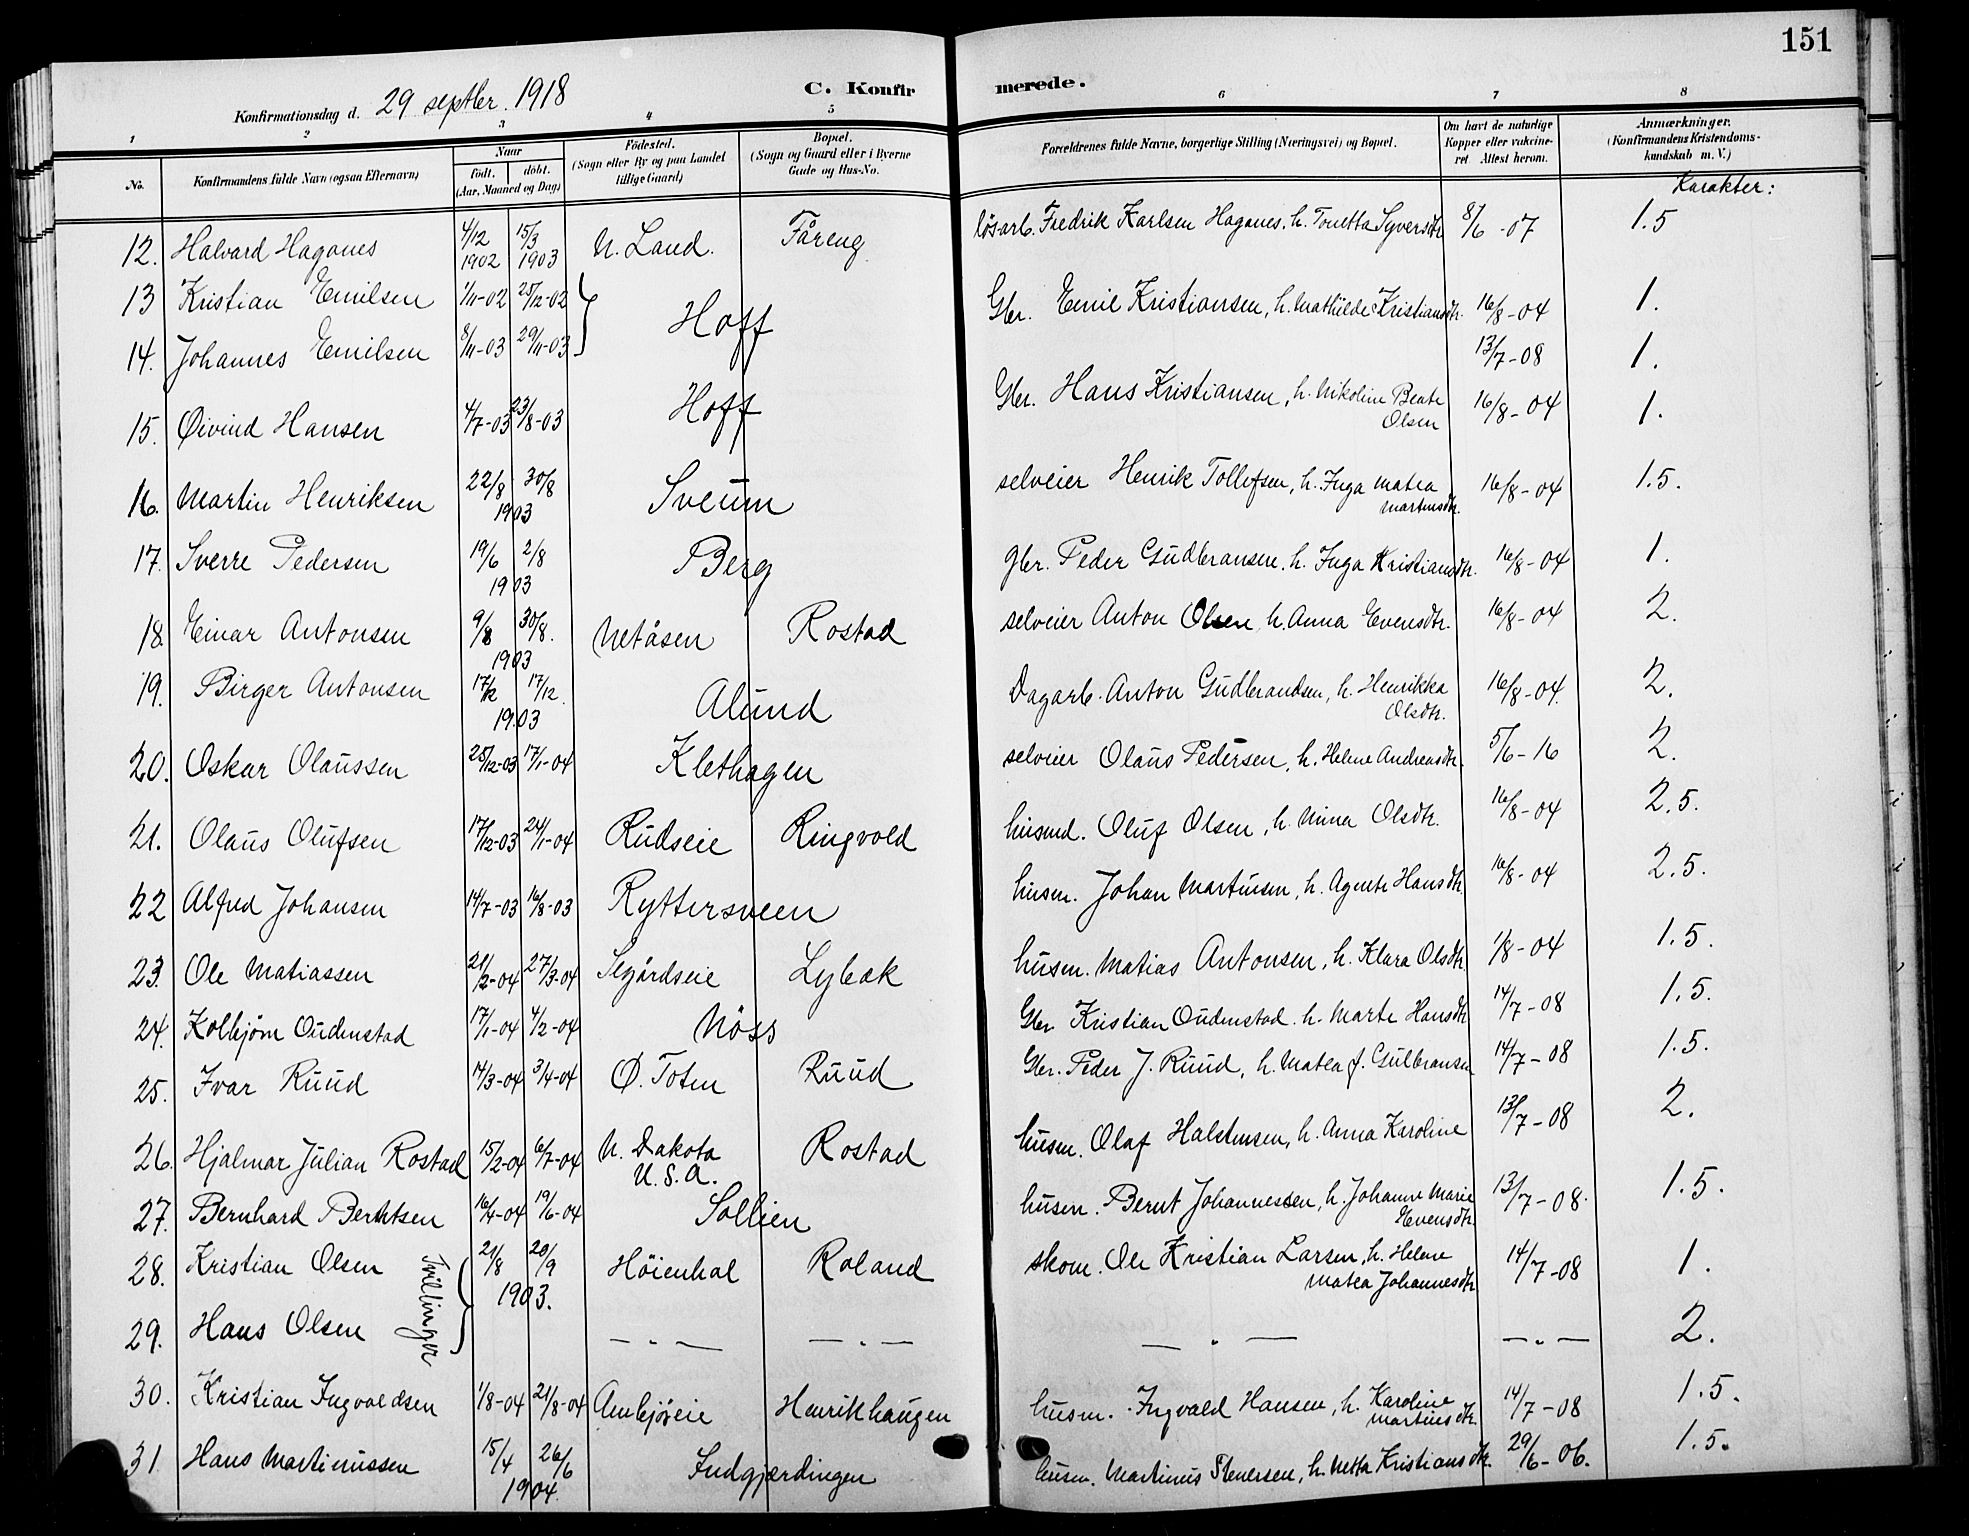 151
Konfirmationsdag d. 29 septbr. 1918
C. Konfirmerede.
1 2 3 4 5 6 7 8
No.
Konfirmandens fulde Navn (ogsaa Efternavn)
Naar
født. døbt.
(Aar, Maaned og Dag)
Fødested.
(Sogn eller By og paa Landet
tillige Gaard)
Bopæl.
(Sogn og Gaard eller i Byerne
Gade og Hus-No.
Forældrenes fulde Navne, borgerlige Stilling (Næringsvei) og Bopæl.
Om havt de naturlige
Kopper eller vakcine-
ret Attest herom.
Anmærkninger.
(Konfirmandens Kristendoms-
kundskab m. V.)
Karakter:
12. Halvard Haganes 4/12 1902 15/3 1903 N. Land. Fåreng løsarb. Fredrik Karlsen Haganes, h. Tonetta Syversdtr 8/6 -07 1.5
13 Kristian Emilsen 1/11-02 25/12-02 } Hoff Gbr. Emil Kristiansen, h. Mathilde Kristiansdtr. 16/8-04 1.
14. Johannes Emilsen 8/11-03 29/11-03 13/7-08 1.
15. Øivind Hansen 4/7-03 23/8-03 Hoff Gbr. Hans Kristiansen, h. Nikoline Beate Olsen 16/8-04 1.
16. Martin Henriksen 22/8 30/8 1903 Sveum selveier Henrik Tollefsen, h. Inga Matea Martinsdtr. 16/8-04 1.5.
17. Sverre Pedersen 19/6 2/8 1903 Berg gbr. Peder Gudbransen. h. Inga Kristiansdtr. 16/8-04 1.
18. Einar Antonsen 9/8 30/8. 1903 Netåsen Rostad selveier Anton Olsen h. Anna Evensdtr. 16/8-04 2.
19. Birger Antonsen 17/12 1903 Alund Dagarb. Anton Gudbrandsen, h. Henrikka Olsdtr. 16/8-04. 2.
20. Oskar Olaussen 25/12-03 17/1-04 Klethagen selveier Olaus Pedersen, h. Helene Andreasdtr. 5/6-16 2.
21. Olaus Olufsen 17/12-03 24/1-04 Rudseie Ringvold husmd. Oluf Olsen, h. Mina Olsdtr. 16/8-04 2.5.
22 Alfred Johansen 14/7-03 16/8-03 Ryttersveen husm. Johan Martinsen, h. Agnete Hansdtr 16/8-04 2.5.
23. Ole Matiassen 21/2-04 27/3-04 Segårdseie Lybæk husm. Matias Antonsen, h. Klara Olsdtr. 1/8-04 1.5.
24. Kolbjørn Oudenstad 17/1-04 4/2-04 Nöss Gbr Kristian Oudenstad. h. Marte Hansdtr 14/7-08 1.5.
25. Ivar Ruud 14/3-04 3/4-04 Ø. Toten Ruud Gbr. Peder J. Ruud, h. Matea f. Gulbransen 14/7-08 1.5.
26. Hjalmar Julian Rostad 15/2-04 6/7-04 N. Dakota U.S.A. Rostad husm. Olaf Halstensen, h. Anna Karoline 13/7-08 2.
27. Bernhard Berntsen 16/4-04 19/6-04 Sollien husm. Bernt Johannessen, h. Johanne Marie Evensdtr. 13/7-08. 1.5.
28. Kristian Olsen Tvillinger } 21/8 20/9 1903. Höienhal Roland skom. Ole Kristian Larsen, h. Helene Matea Johannesdtr 14/7-08 1.
29. Hans Olsen — " — — " — — " — — " — 2.
30. Kristian Ingvaldsen 1/8-04 21/8-04 Ambjöreie Henrikhaugen husm. Ingvald Hansen, h. Karoline Martinsdtr. 14/7-08 1.5.
31 Hans Martinussen 15/4 26/6 1904. Indgjærdingen husm. Martinus Stenersen, h. Netta Kristiansdtr. 29/6-06. 1.5.